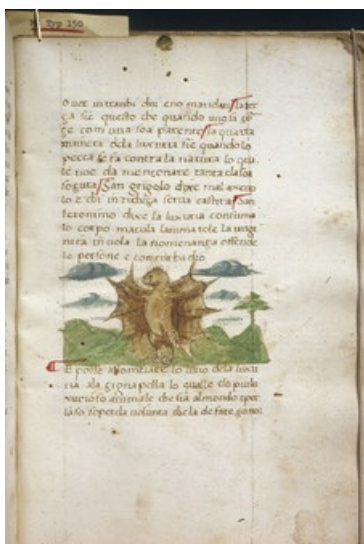 Typ 150
o uer intranbi dui eno maridati la ter
za sie questo che quando uno la
ge com una soa parente la quarta
mainera dela luxuria sie quando lo
pecca se fa contra la natura lo qua
le noe da mentonare tanta ela soa
sogura San grigolo dixe mal exemp
lo e chi in richeza serua castita San
ieronimo dixe la luxuria consuma
lo corpo macula lanima tole la uirgi
nita inuola la nomenanza offende
le persone e dio
E posse apomeiare lo uitio dela luxu
ria ala grignapella lo qualle sie piu lu
xurioso animale che sia al mondo e per
la so soperchia uolunta che la de fare